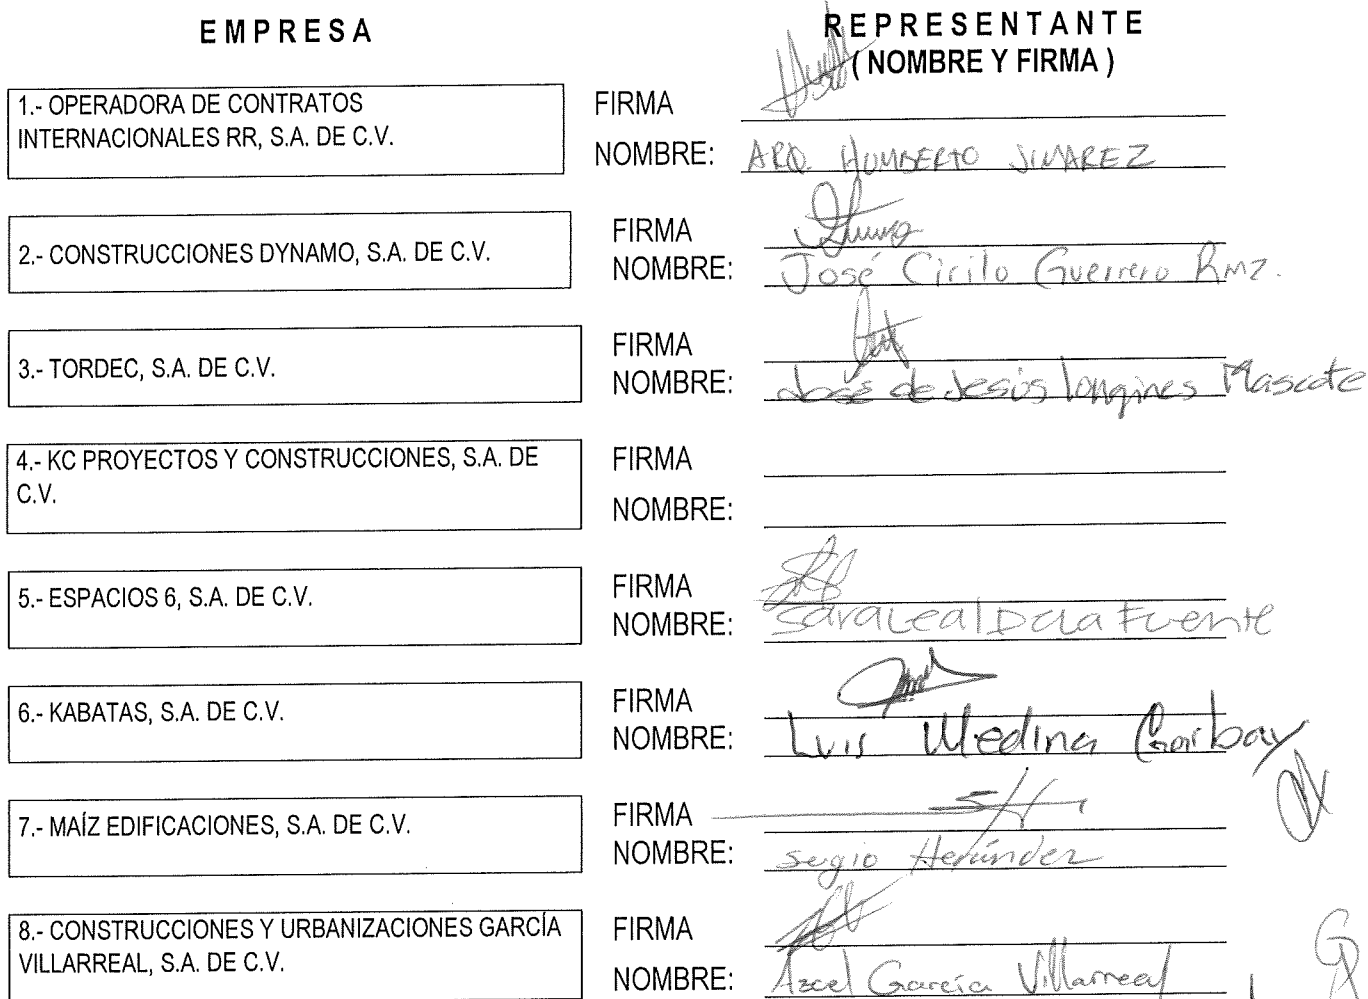 EMPRESA
REPRESENTANTE
( NOMBRE Y FIRMA )
1.- OPERADORA DE CONTRATOS
INTERNACIONALES RR, S.A. DE C.V.
FIRMA
NOMBRE: ARQ. HUMBERTO JIMAREZ
2.- CONSTRUCCIONES DYNAMO, S.A. DE C.V.
FIRMA
NOMBRE: José Cirilo Guerrero Rmz.
3.- TORDEC, S.A. DE C.V.
FIRMA
NOMBRE: José de Jesús Longines Mascote
4.- KC PROYECTOS Y CONSTRUCCIONES, S.A. DE
C.V.
FIRMA
NOMBRE:
5.- ESPACIOS 6, S.A. DE C.V.
FIRMA
NOMBRE: Sara Leal D La Fuente
6.- KABATAS, S.A. DE C.V.
FIRMA
NOMBRE: Luis Medina Garibay
7.- MAÍZ EDIFICACIONES, S.A. DE C.V.
FIRMA
NOMBRE: Sergio Hernández
8.- CONSTRUCCIONES Y URBANIZACIONES GARCÍA
VILLARREAL, S.A. DE C.V.
FIRMA
NOMBRE: Azael García Villarreal